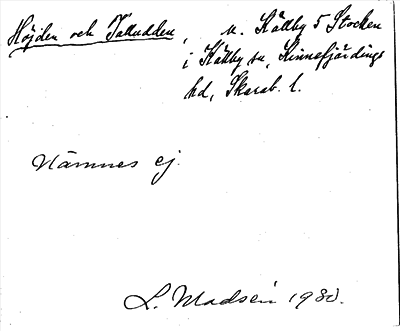 Höjden och Talludden, u. Källby 5 Stocken
i Källby sn, Kinnefjärdings
hd, Skarab. l.
Nämnes ej.
L. Madsén 1930.